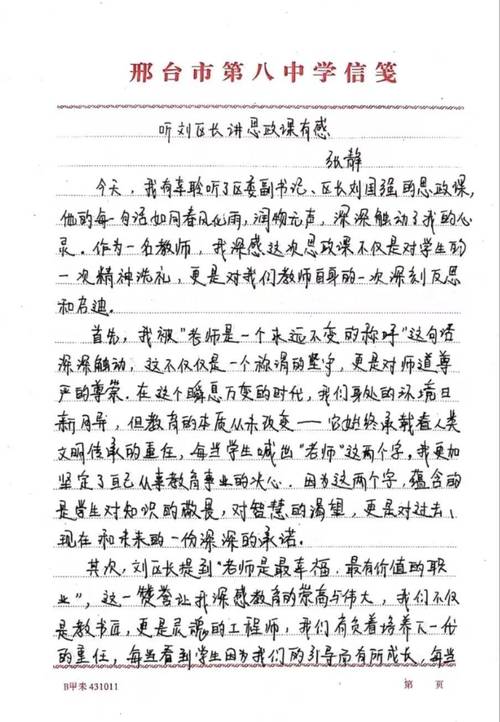 邢台市第八中学信笺
听刘区长讲思政课有感
张静
今天，我有幸聆听了区委副书记、区长刘国强的思政课，
他的每一句话如同春风化雨，润物无声，深深触动了我的心
灵。作为一名教师，我深感这次思政课不仅是对学生的
一次精神洗礼，更是对我们教师自身的一次深刻反思
和启迪.
首先，我被"老师是一个永远不变的称呼"这句话
深深触动，这不仅仅是一个称谓的坚守，更是对师道尊
严的尊崇.在这个瞬息万变的时代，我们身处的环境日
新月异，但教育的本质从未改变——它始终承载着人类
文明传承的重任，每当学生喊出"老师"这两个字，我更加
坚定了自己从事教育事业的决心.因为这两个字，蕴含的
是学生对知识的敬畏，对智慧的渴望，更是对过去、
现在和未来的一份深深的承诺.
其次，刘区长提到"老师是最幸福、最有价值的职
业"，这一赞誉让我深感教育的崇高与伟大，我们不仅
是教书匠，更是灵魂的工程师，我们肩负着培养下一代
的重任，每当看到学生因为我们的引导而有所成长，每当
B甲来431011
第 页